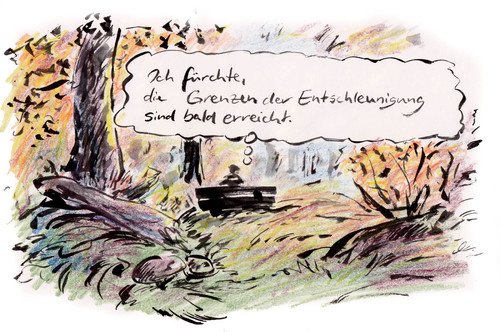 Ich fürchte,
die Grenzen der Entschleunigung
sind bald erreicht.